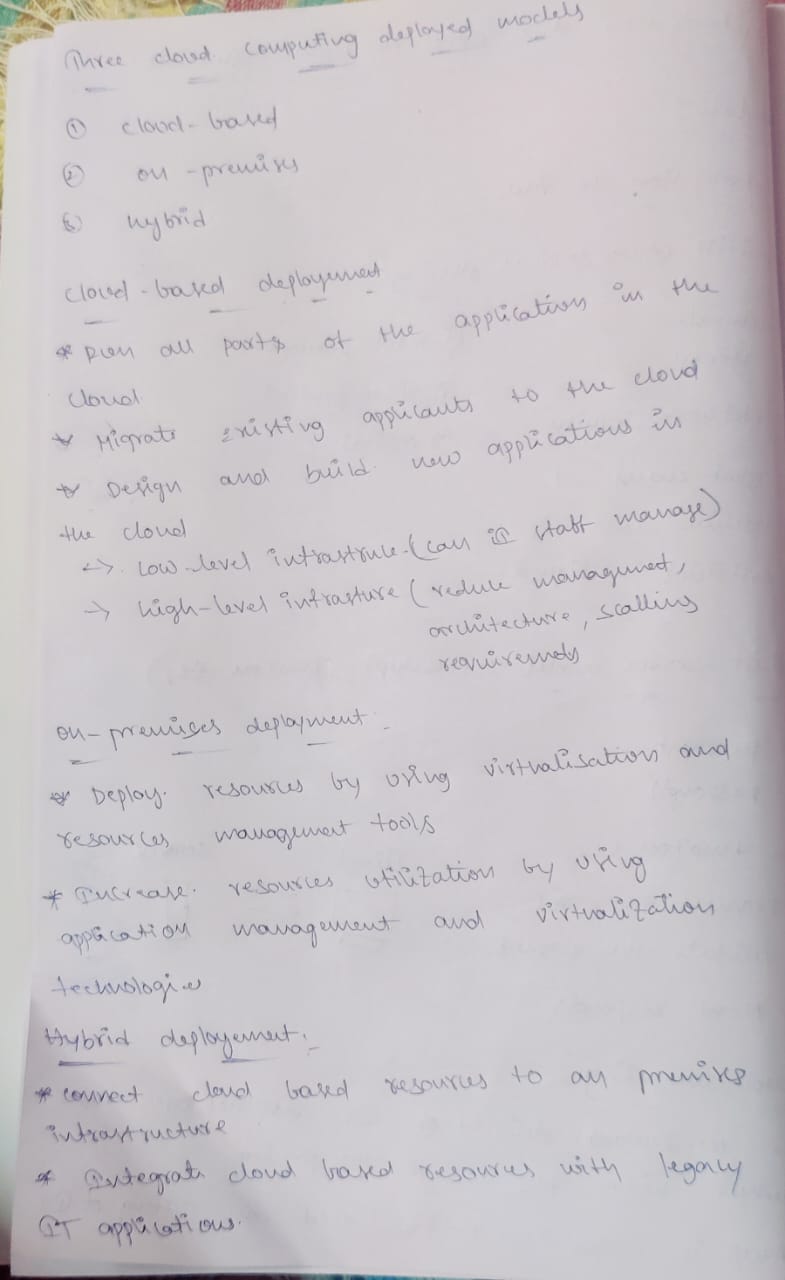 Three cloud computing deployed models
① cloud-based
② on-premises
③ hybrid
cloud-based deployement
* Run all parts of the application in the
cloud
* Migrate existing applicants to the cloud
* Design and build new applications in
the cloud
-> low-level infrastrule (can IT staff manage)
-> high-level infrasture (reduce management,
architecture, scalling
requirements
on-premises deployment
* Deploy resources by using virtualisation and
resources management tools
* Increase resources utilization by using
application management and virtualization
technologies
Hybrid deployement.
* connect cloud based resources to on premises
infrastructure
* Integrate cloud based resources with legacy
IT applications.